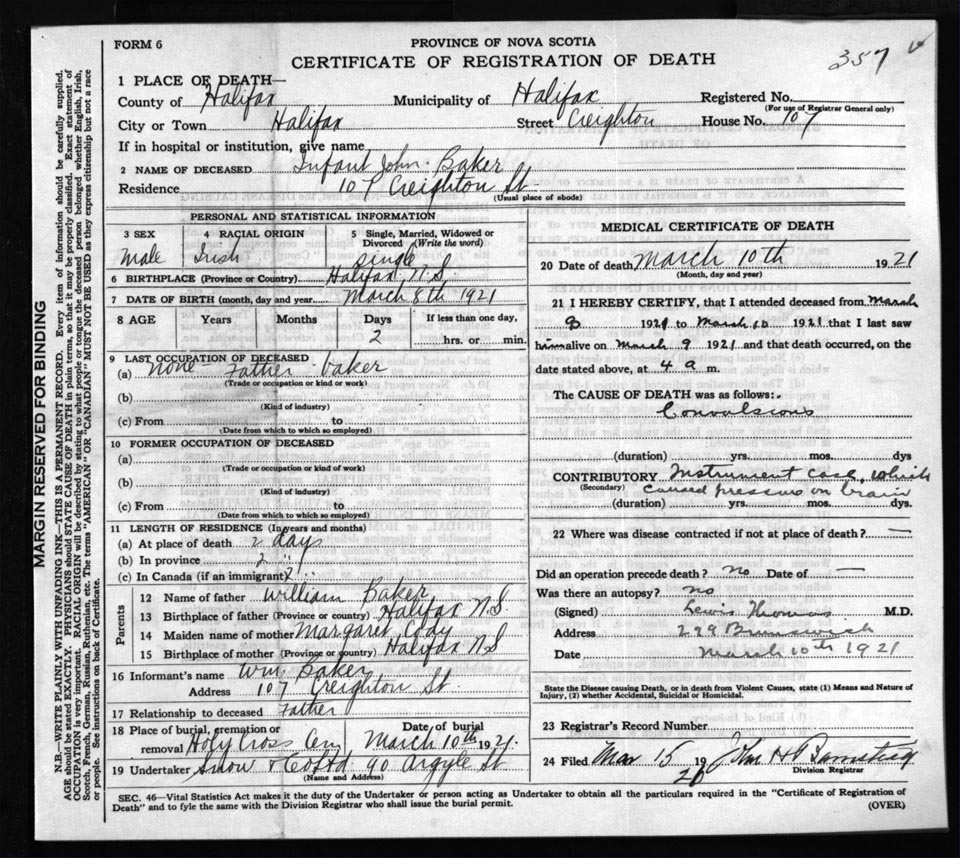 FORM 6
PROVINCE OF NOVA SCOTIA
CERTIFICATE OF REGISTRATION OF DEATH
357
1 PLACE OF DEATH—
County of Halifax Municipality of Halifax Registered No.
(For use of Registrar General only)
City or Town Halifax Street Creighton House No. 107
If in hospital or institution, give name
2 NAME OF DECEASED Infant John Baker
Residence 107 Creighton St
(Usual place of abode)
PERSONAL AND STATISTICAL INFORMATION
3 SEX 4 RACIAL ORIGIN 5 Single, Married, Widowed or Divorced (Write the word)
Male Irish Single
6 BIRTHPLACE (Province or Country) Halifax N.S.
7 DATE OF BIRTH (month, day and year) March 8th 1921
8 AGE Years Months Days If less than one day,
2 hrs. or min.
9 LAST OCCUPATION OF DECEASED
(a) none Father baker
(Trade or occupation or kind or work)
(b)
(Kind of industry)
(c) From to
(Date from which to which so employed)
10 FORMER OCCUPATION OF DECEASED
(a)
(Trade or occupation or kind of work)
(b)
(Kind of industry)
(c) From to
(Date from which to which so employed)
11 LENGTH OF RESIDENCE (In years and months)
(a) At place of death 2 days
(b) In province 2 "
(c) In Canada (if an immigrant) 2
Parents
12 Name of father William Baker
13 Birthplace of father (Province or country) Halifax N.S.
14 Maiden name of mother Margaret Cody
15 Birthplace of mother (Province or country) Halifax N S
16 Informant's name Wm. Baker
Address 107 Creighton St.
17 Relationship to deceased Father
18 Place of burial, cremation or removal Holy Cross Cem Date of burial March 10th 1921.
19 Undertaker Snow & Co Ltd 90 Argyle St
(Name and Address)
MEDICAL CERTIFICATE OF DEATH
20 Date of death March 10th 1921
(Month, day and year)
21 I HEREBY CERTIFY, that I attended deceased from March
8 1921 to March 10 1921 that I last saw
him alive on March 9 1921 and that death occurred, on the
date stated above, at 4 a m.
The CAUSE OF DEATH was as follows:
Convulsions
(duration) yrs. mos. dys
CONTRIBUTORY Instrument case, which
(Secondary) caused pressure on brain
(duration) yrs. mos. dys.
22 Where was disease contracted if not at place of death? —
Did an operation precede death? no Date of —
Was there an autopsy? no
(Signed) Lewis Thomas M.D.
Address 229 Brunswick
Date March 10th 1921
State the Disease causing Death, or in death from Violent Causes, state (1) Means and Nature of
Injury, (2) whether Accidental, Suicidal or Homicidal.
23 Registrar's Record Number
24 Filed Mar 15 19
Division Registrar
SEC. 46—Vital Statistics Act makes it the duty of the Undertaker or person acting as Undertaker to obtain all the particulars required in the "Certificate of Registration of
Death" and to fyle the same with the Division Registrar who shall issue the burial permit.
(OVER)
MARGIN RESERVED FOR BINDING
N.B.—WRITE PLAINLY WITH UNFADING INK—THIS IS A PERMANENT RECORD. Every item of information should be carefully supplied.
AGE should be stated EXACTLY. PHYSICIANS should STATE CAUSE OF DEATH in plain terms, so that it may be properly classified. Exact statement of
OCCUPATION is very important. RACIAL ORIGIN will be described by stating to what people or tongue the deceased person belonged whether English, Irish,
Scotch, French, German, Russian, Ruthenian, etc. The terms "AMERICAN" or "CANADIAN" MUST NOT BE USED as they express citizenship but not a race
or people. See instructions on back of Certificate.